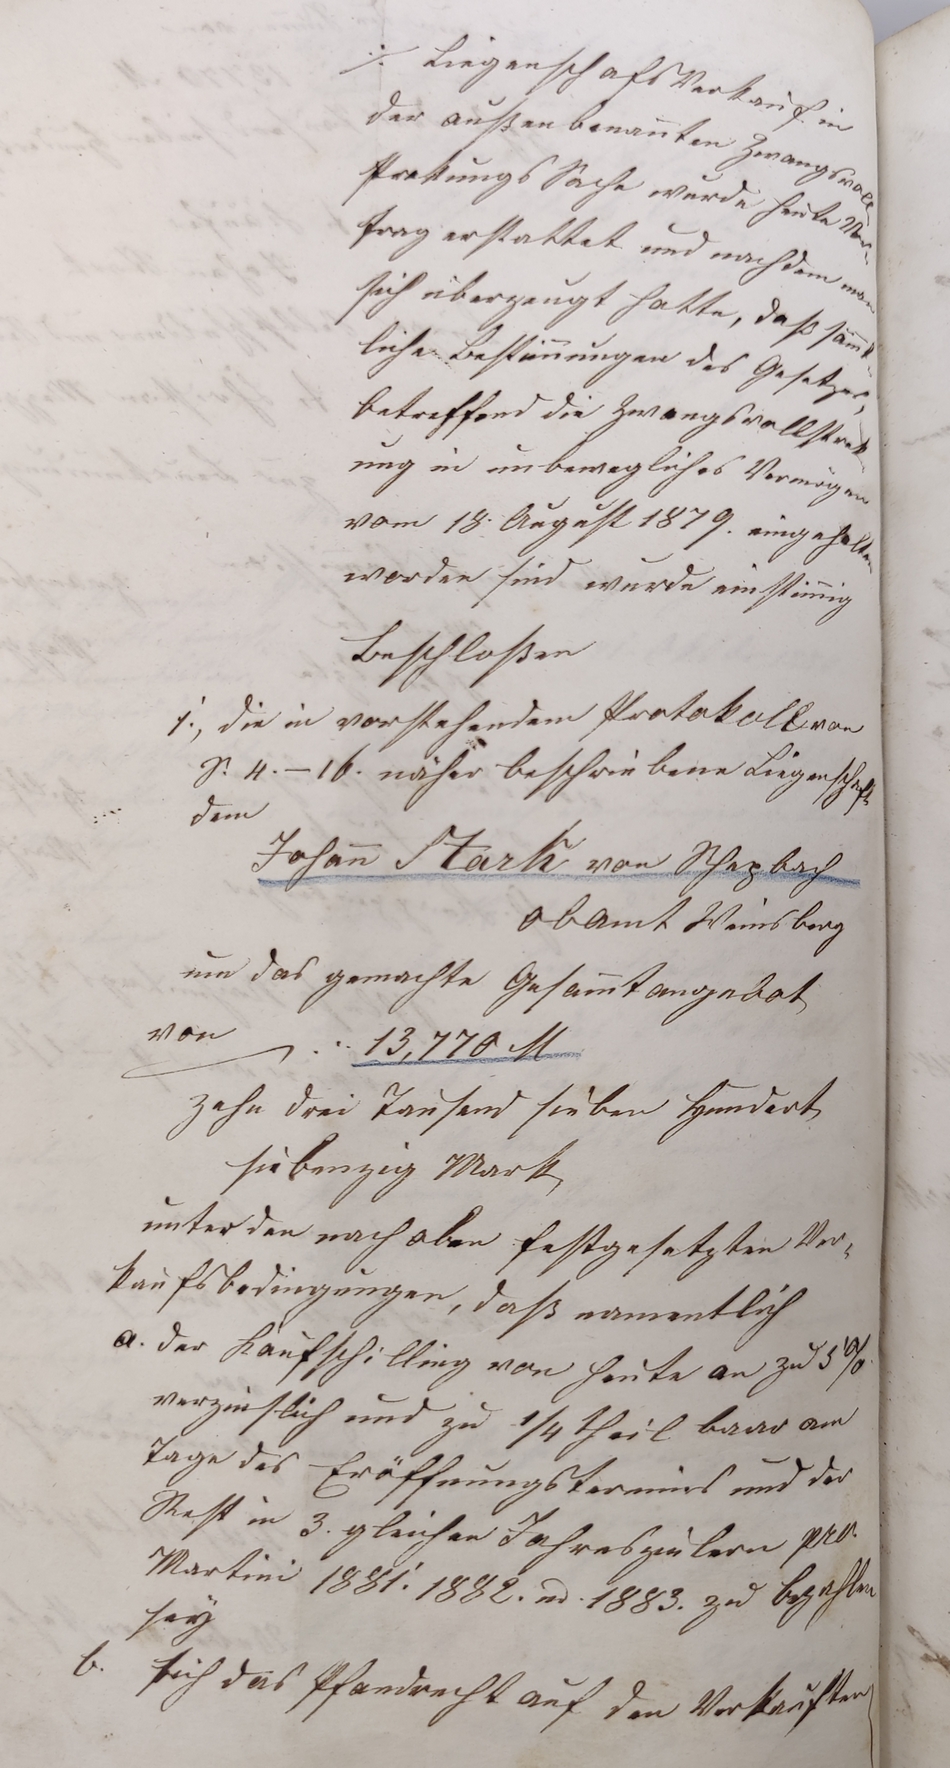 ./. Liegenschafs Verkauf in
der außen benannten Zwangsvoll
strekungs Sache wurde heute Vor-
trag erstattet und nachdem man
sich überzeugt hatte, daß sämt-
liche Bestim̄ungen des Gesetzes,
betreffend die Zwangsvollstrek-
ung in unbewegliches Vermögen
vom 18. August 1879. eingehalten
worden sind wurde einstim̄ig
Beschloßen
1., die in vorstehendem Protokoll von
S. 4. – 16. näher beschriebene Liegenschaft
dem
Johan̄ Stark von
Obamt Weinsberg
um das gemachte Gesam̄tangebot
von 13,770 M
zehn drei Tausend sieben Hundert
siebenzig Mark,
unter den nach oben festgesetzten Ver-
kaufsbedingungen, daß namentlich
a. der Kaufschilling von heute an zu 5 %
verzinslich und zu 1/4 theil baar am
Tage des Eröffnungstermins und der
Rest in 3. gleichen Jahreszielern pro.
Martini 1881. 1882. ud. 1883. zu bezahlen
sey
b. sich das Pfandrecht auf den Verkauften